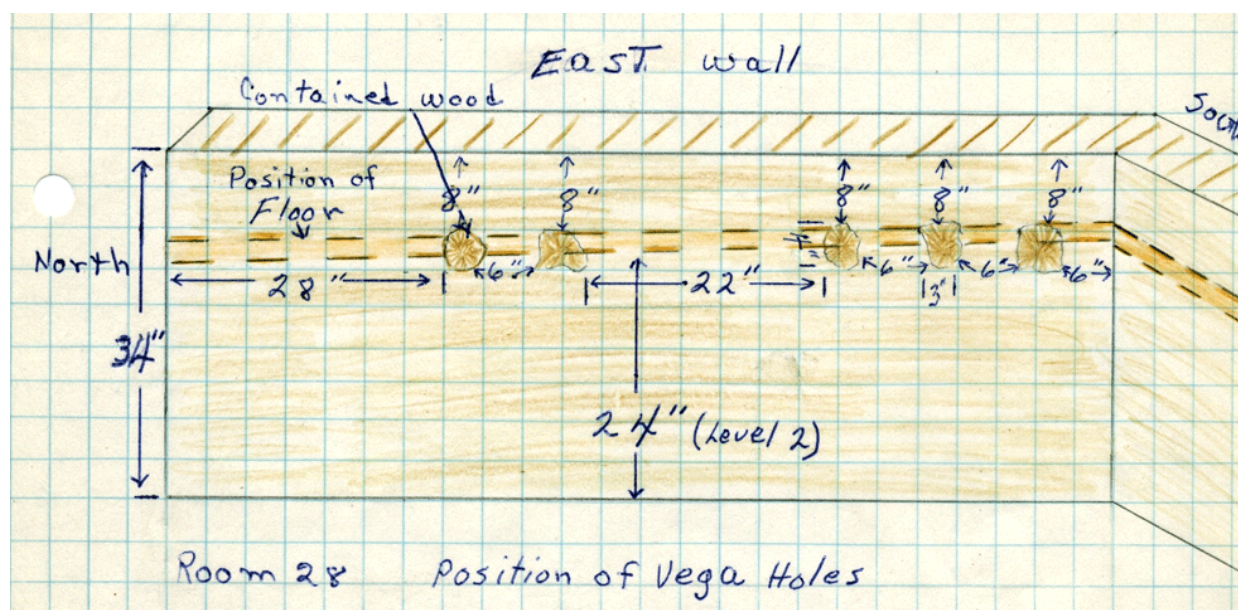 East wall
Contained wood
South
Position of
Floor
8" 8" 8" 8" 8"
North
28" 6" 22" 4" 6" 3" 6" 6"
34"
24" (Level 2)
Room 28 Position of Vega Holes